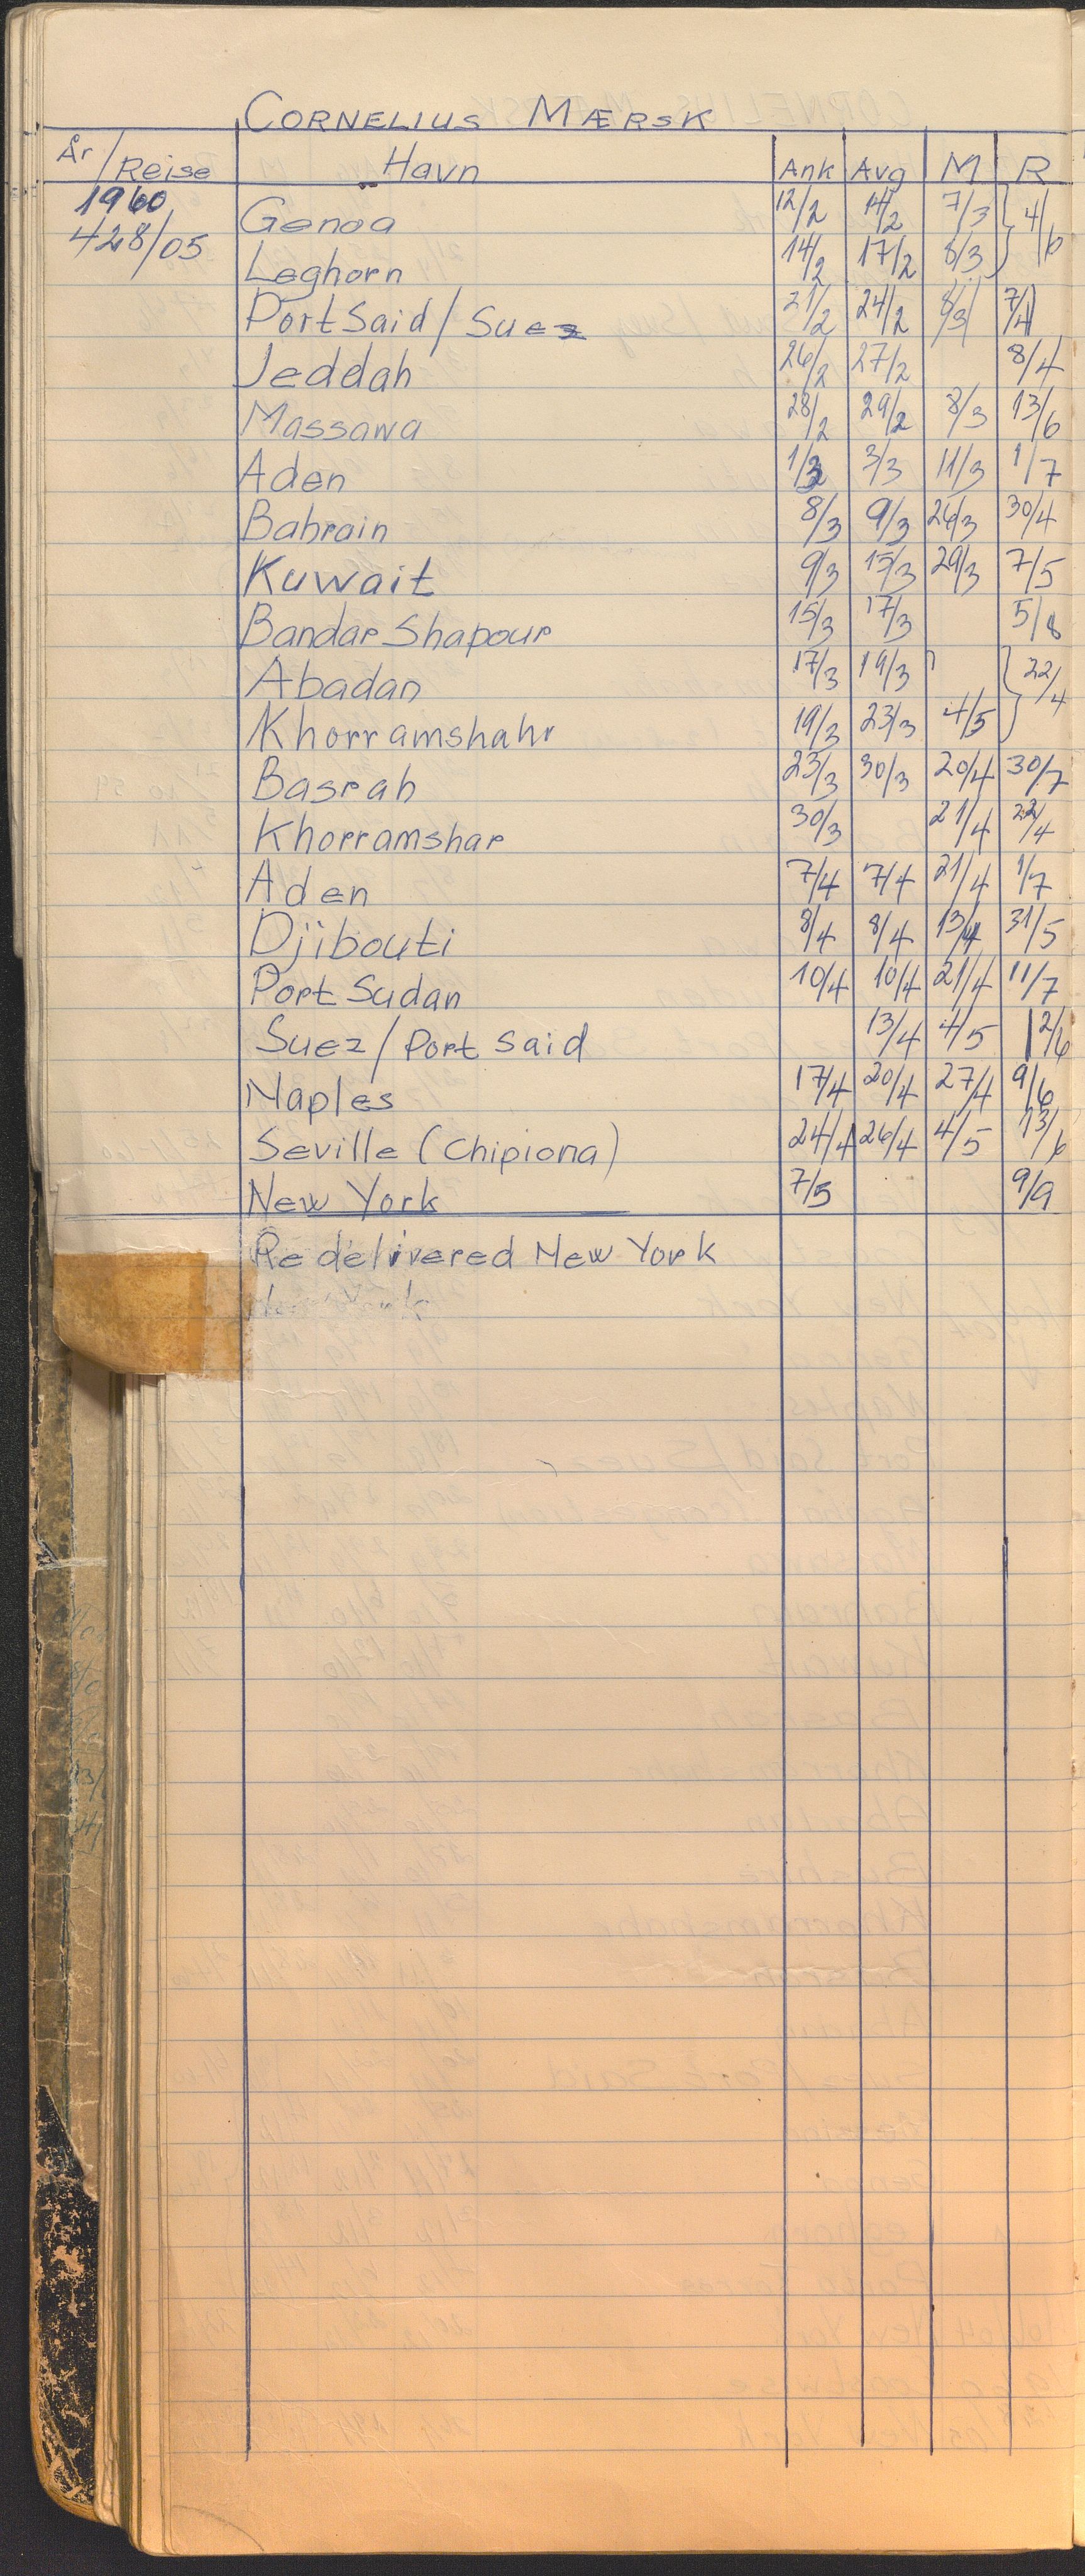 CORNELIUS MÆRSK
År / Reise Havn Ank Avg M R
1960
428/05 Genoa 12/2 14/2 7/3 } 4/6
Leghorn 14/2 17/2 8/3
Port Said / Suez 21/2 24/2 8/3 7/4
Jeddah 26/2 27/2 8/4
Massawa 28/2 29/2 8/3 13/6
Aden 1/3 3/3 11/3 1/7
Bahrain 8/3 9/3 26/3 30/4
Kuwait 9/3 15/3 29/3 7/5
Bandar Shapour 15/3 17/3 5/8
Abadan 17/3 19/3 } } 22/4
Khorramshahr 19/3 23/3 4/5
Basrah 23/3 30/3 20/4 30/7
Khorramshar 30/3 21/4 22/4
Aden 7/4 7/4 21/4 1/7
Djibouti 8/4 8/4 13/4 31/5
Port Sudan 10/4 10/4 21/4 11/7
Suez / Port Said 13/4 4/5 12/6
Naples 17/4 20/4 27/4 9/6
Seville (Chipiona) 24/4 26/4 4/5 13/6
New York 7/5 9/9
Redelivered New York